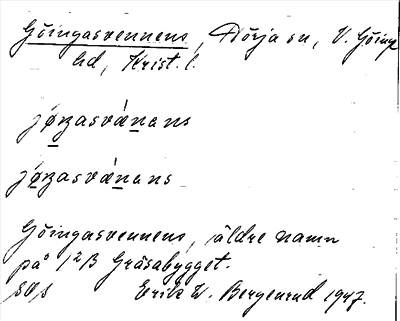 Göingasvennens, Norja sn, V. Göinge
hd, Krist. l.
jø̱ŋasvǽnans
jø̱ŋasvǽnans
Göingasvennens, äldre namn
på 1 2/3 Gräsabygget.
Erik W. Bergenrud 1947.